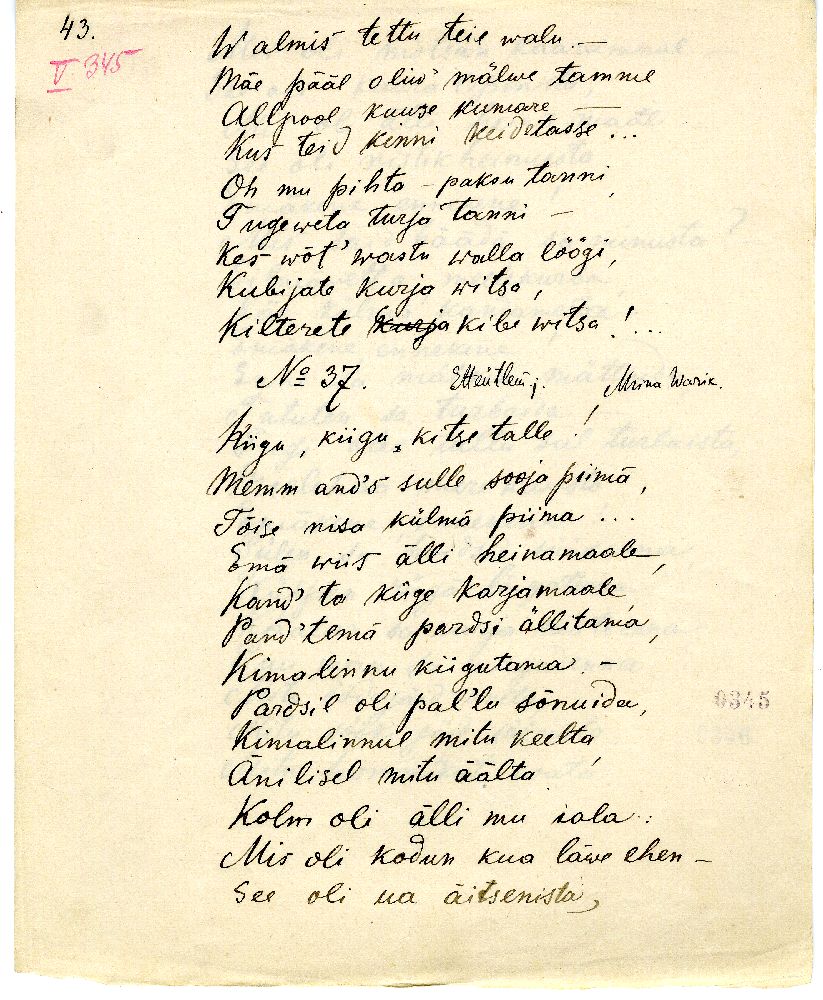 43.
V 345
Walmis tettu teie walu. —
Mäe pääl oliw mälwe tamme
Allpool kuuse kumare —
Kus teid kinni keidetasse ...
Oh mu pihta - paksu tanni,
Tugeweta turja tanni —
Kes wõt' wastu walla löögi,
Kubijate kurja witsa,
Kilterete kurja kibe witsa! ...
№ 37. Miina Warik.
Kiigu, kiigu, kitse talle!
Memm and's sulle sooja piimä,
Tõise nisa külmä piima ...
Emä wiis älli heinamaale,
Kand' ta kiige karjamaale,
Pand' temä pardsi ällitama,
Kimalinnu kiigutama. —
Pardsil oli pal'lu sõnuida,
Kimalinnul mitu keelta,
Änilisel mitu äälta
Kolm oli älli mu iala:
Mis oli kodun kua läwe ehen —
See oli ua äitsenista,
0345